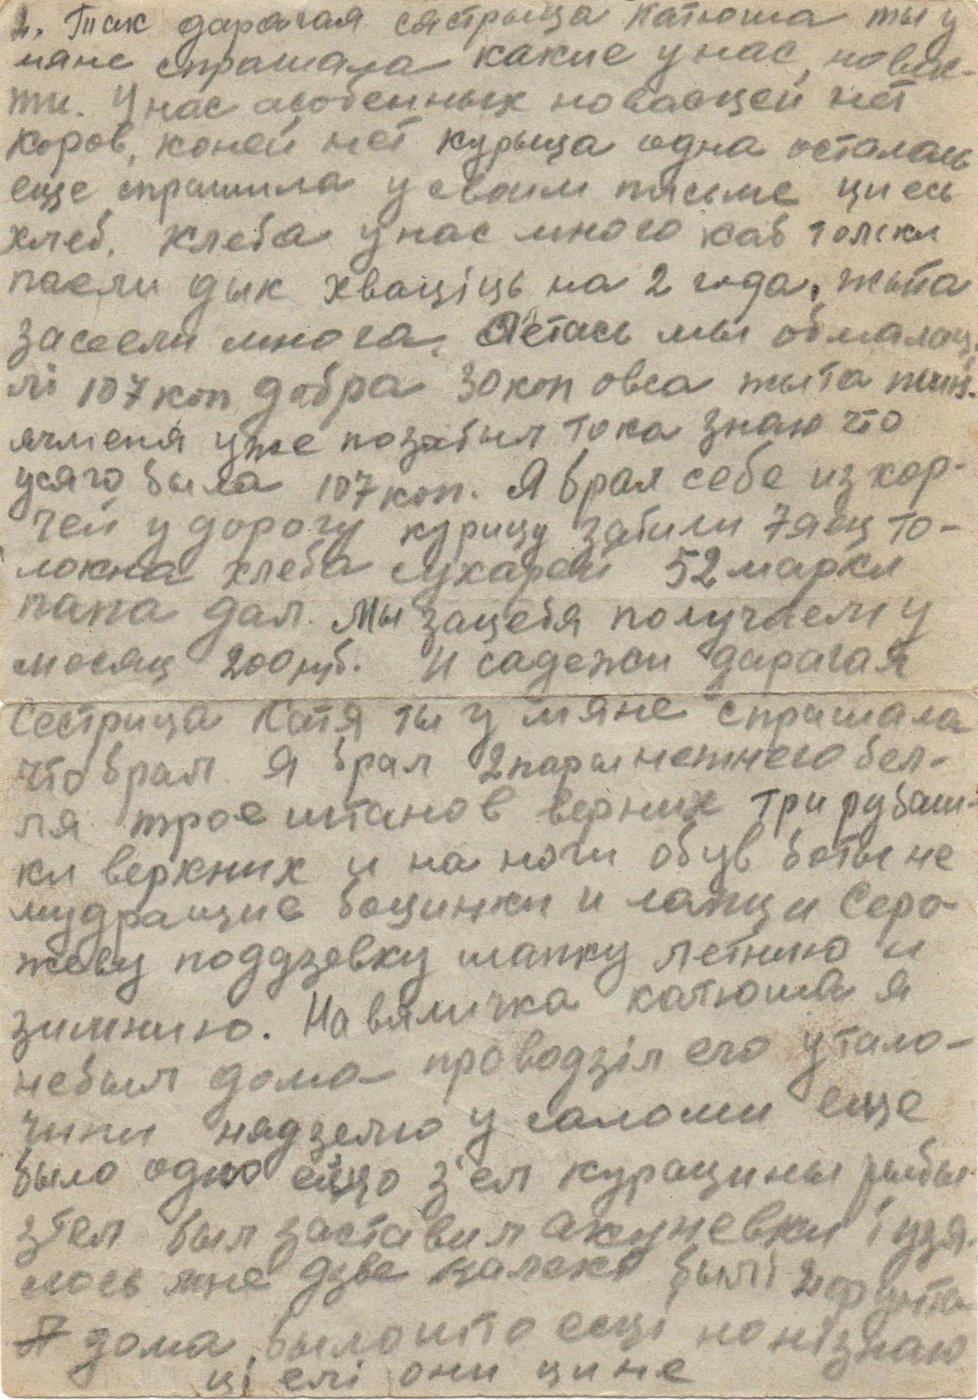 2. Так дарагая сястрыца Катюша ты у
мяне спрашала какие у нас навас-
ти. У нас асобенных новасцей нет
коров, коней нет курыца одна осталась
еще спрашила у своим письме ци есь
хлеб. Хлеба у нас много каб толки
паели дык хваціць на 2 года, жыта
засеели много. Летась мы обмалац
лі 107 коп добра 30 коп овса жыта
ячменя уже позабыл тока знаю что
усяго была 107 коп. Я врал себе из хор-
чей у дорогу курицу забили 7 яиц то-
локна хлеба сухарей 52 марки
папа дал. Мы за цебя получаем у
месяц 200 руб. И садежи дарагая
Сестрица Катя ты у мяне спрашала
что врал. Я врал 2 пары нежнего бел-
ля трое штанов верних три рубаш-
ки верхних и на ноги обув боты не
мудращие боцинки и лапци Серо-
жеву поддзевку шапку летнию и
зимнию. На вяличка катюша я
не был дома проводзіл его у тало-
чини нядзелю у саломи еще
было одно ейцо з'ел курацины рыбы
з'ел был заставил акуневки і узя
лось мне дзве были 2 фунта
А дома было што есці но нізнаю
ці елі они ци не